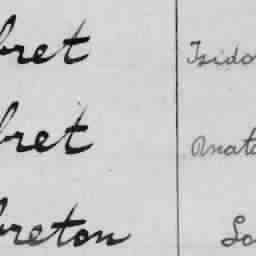 bret Isido
bret Anato
breton Lo